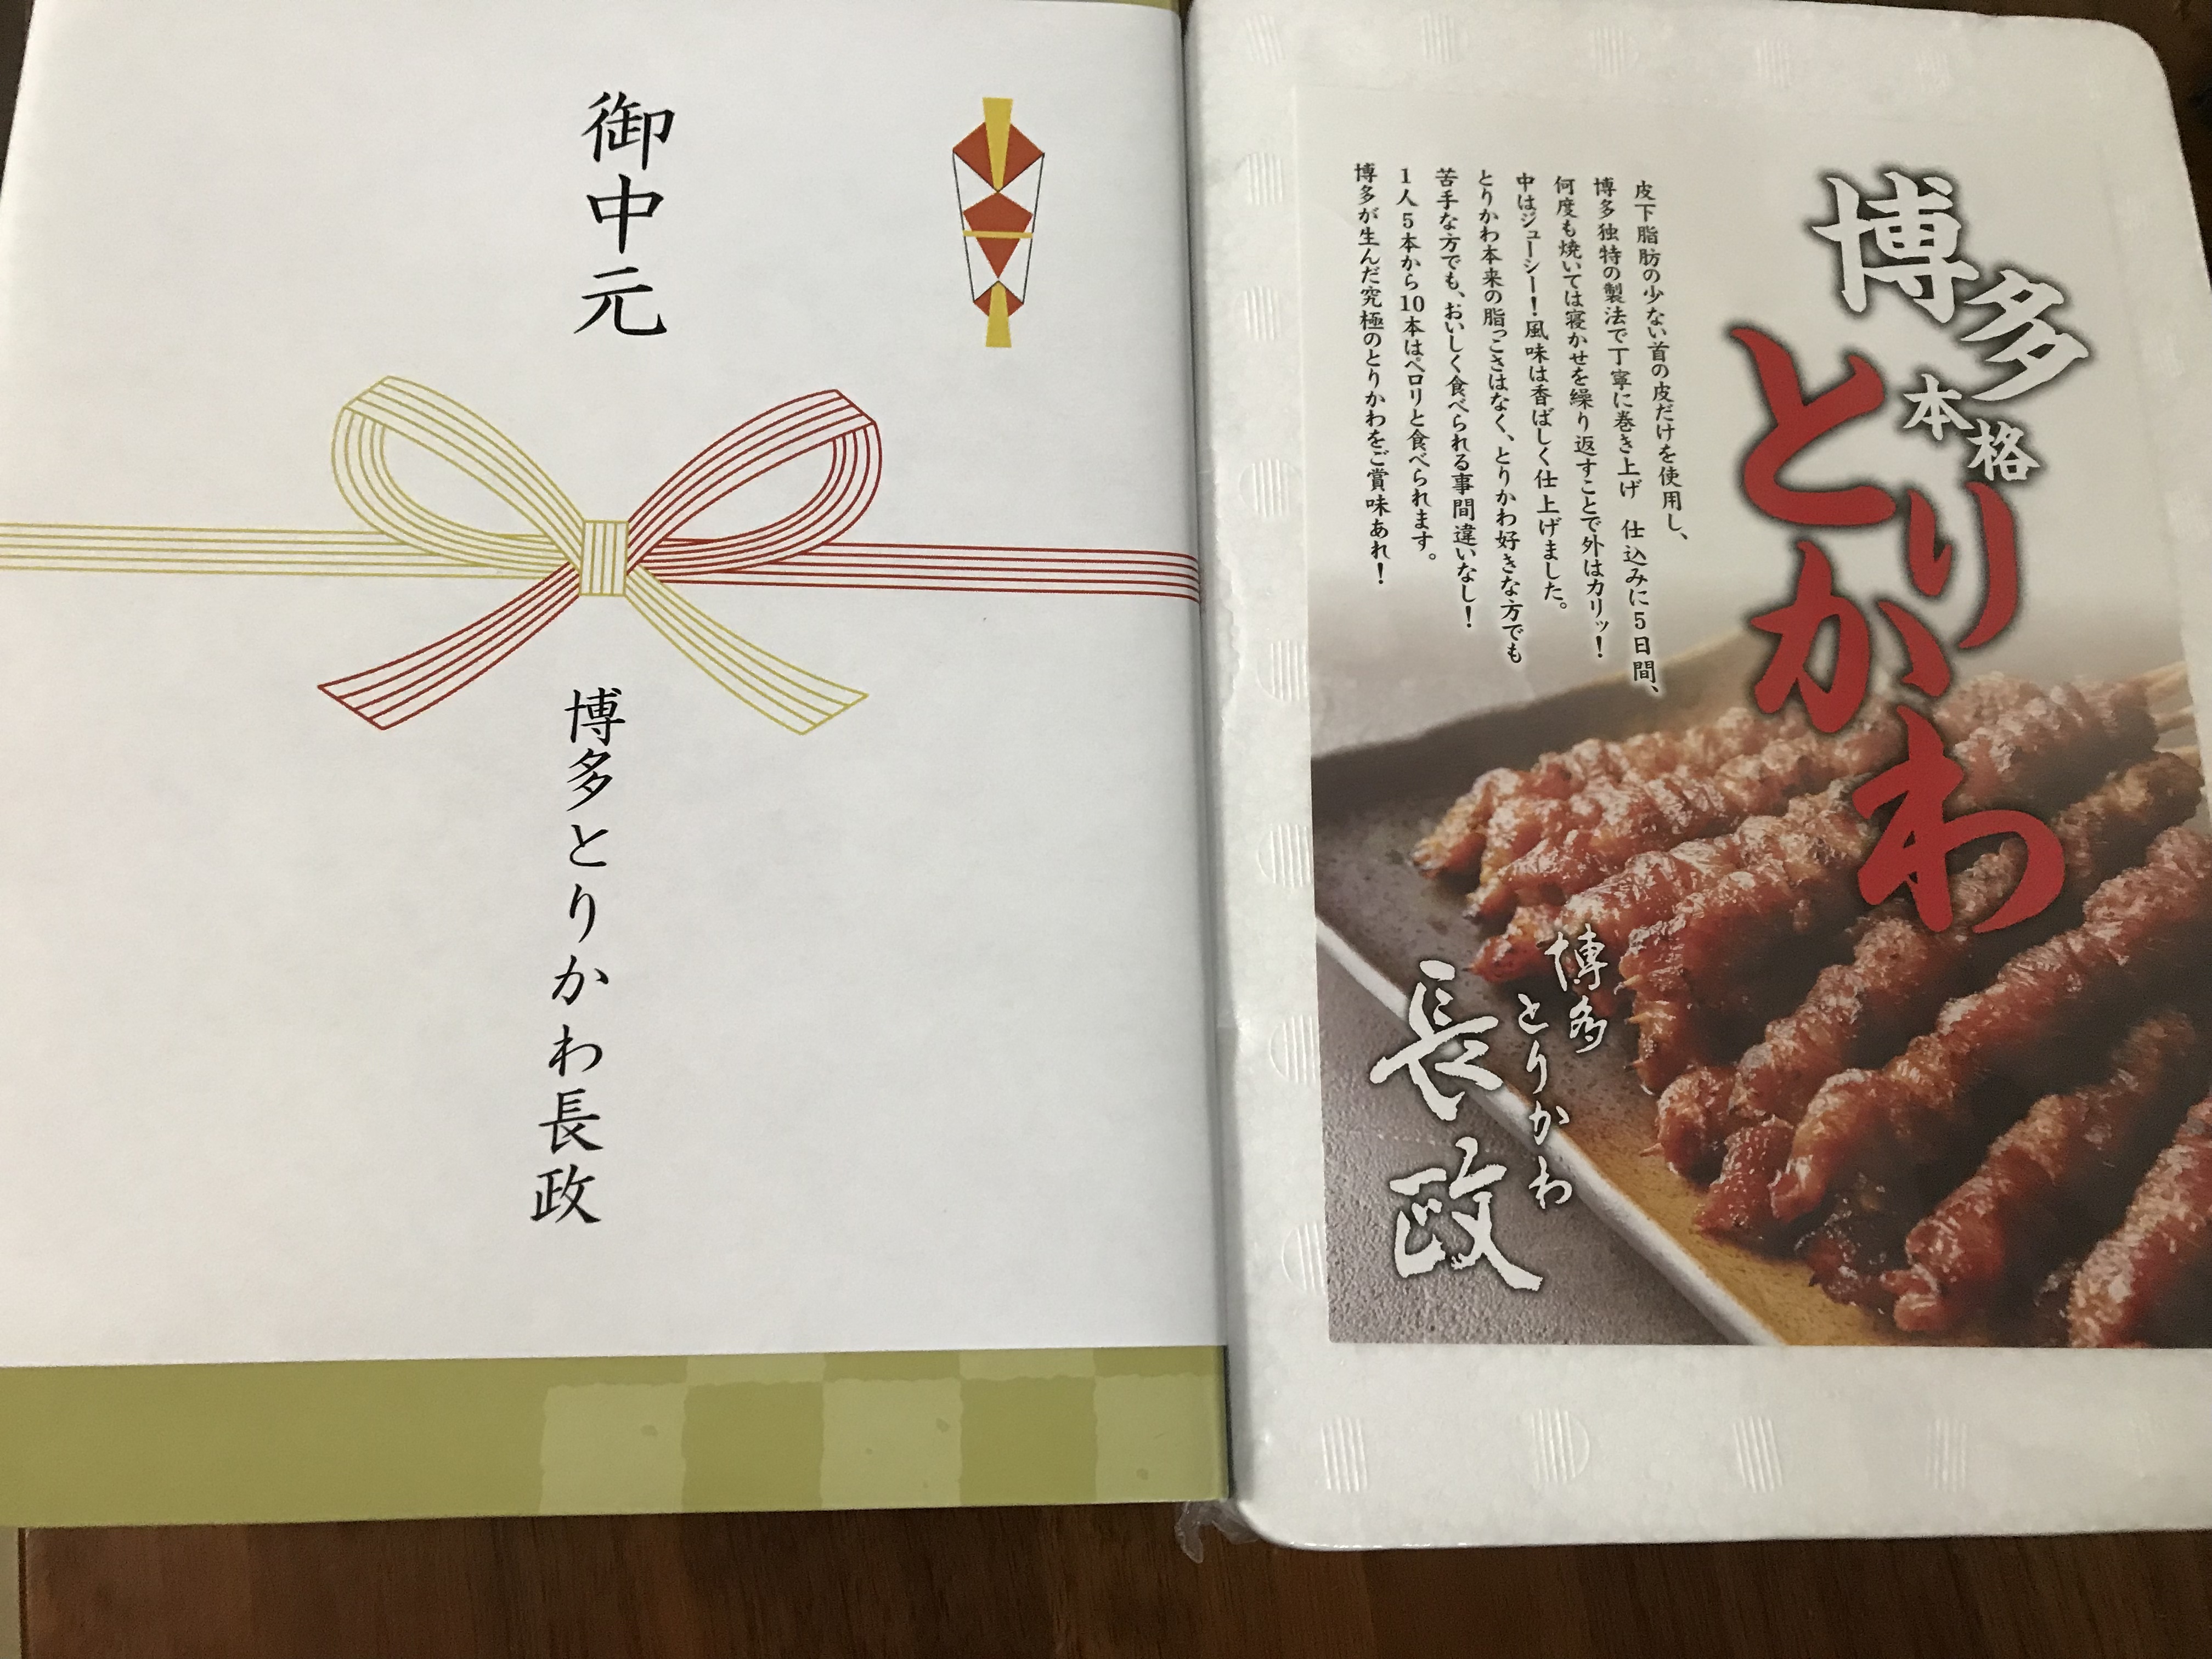 御中元
博多とりかわ長政
博多
本格
とりかわ
皮下脂肪の少ない首の皮だけを使用し、
博多独特の製法で丁寧に巻き上げ 仕込みに5日間、
何度も焼いては寝かせを繰り返すことで外はカリッ!
中はジューシー!風味は香ばしく仕上げました。
とりかわ本来の脂っこさはなく、とりかわ好きな方でも
苦手な方でも、おいしく食べられる事間違いなし!
1人5本から10本はペロリと食べられます。
博多が生んだ究極のとりかわをご賞味あれ!
博多とりかわ
長政